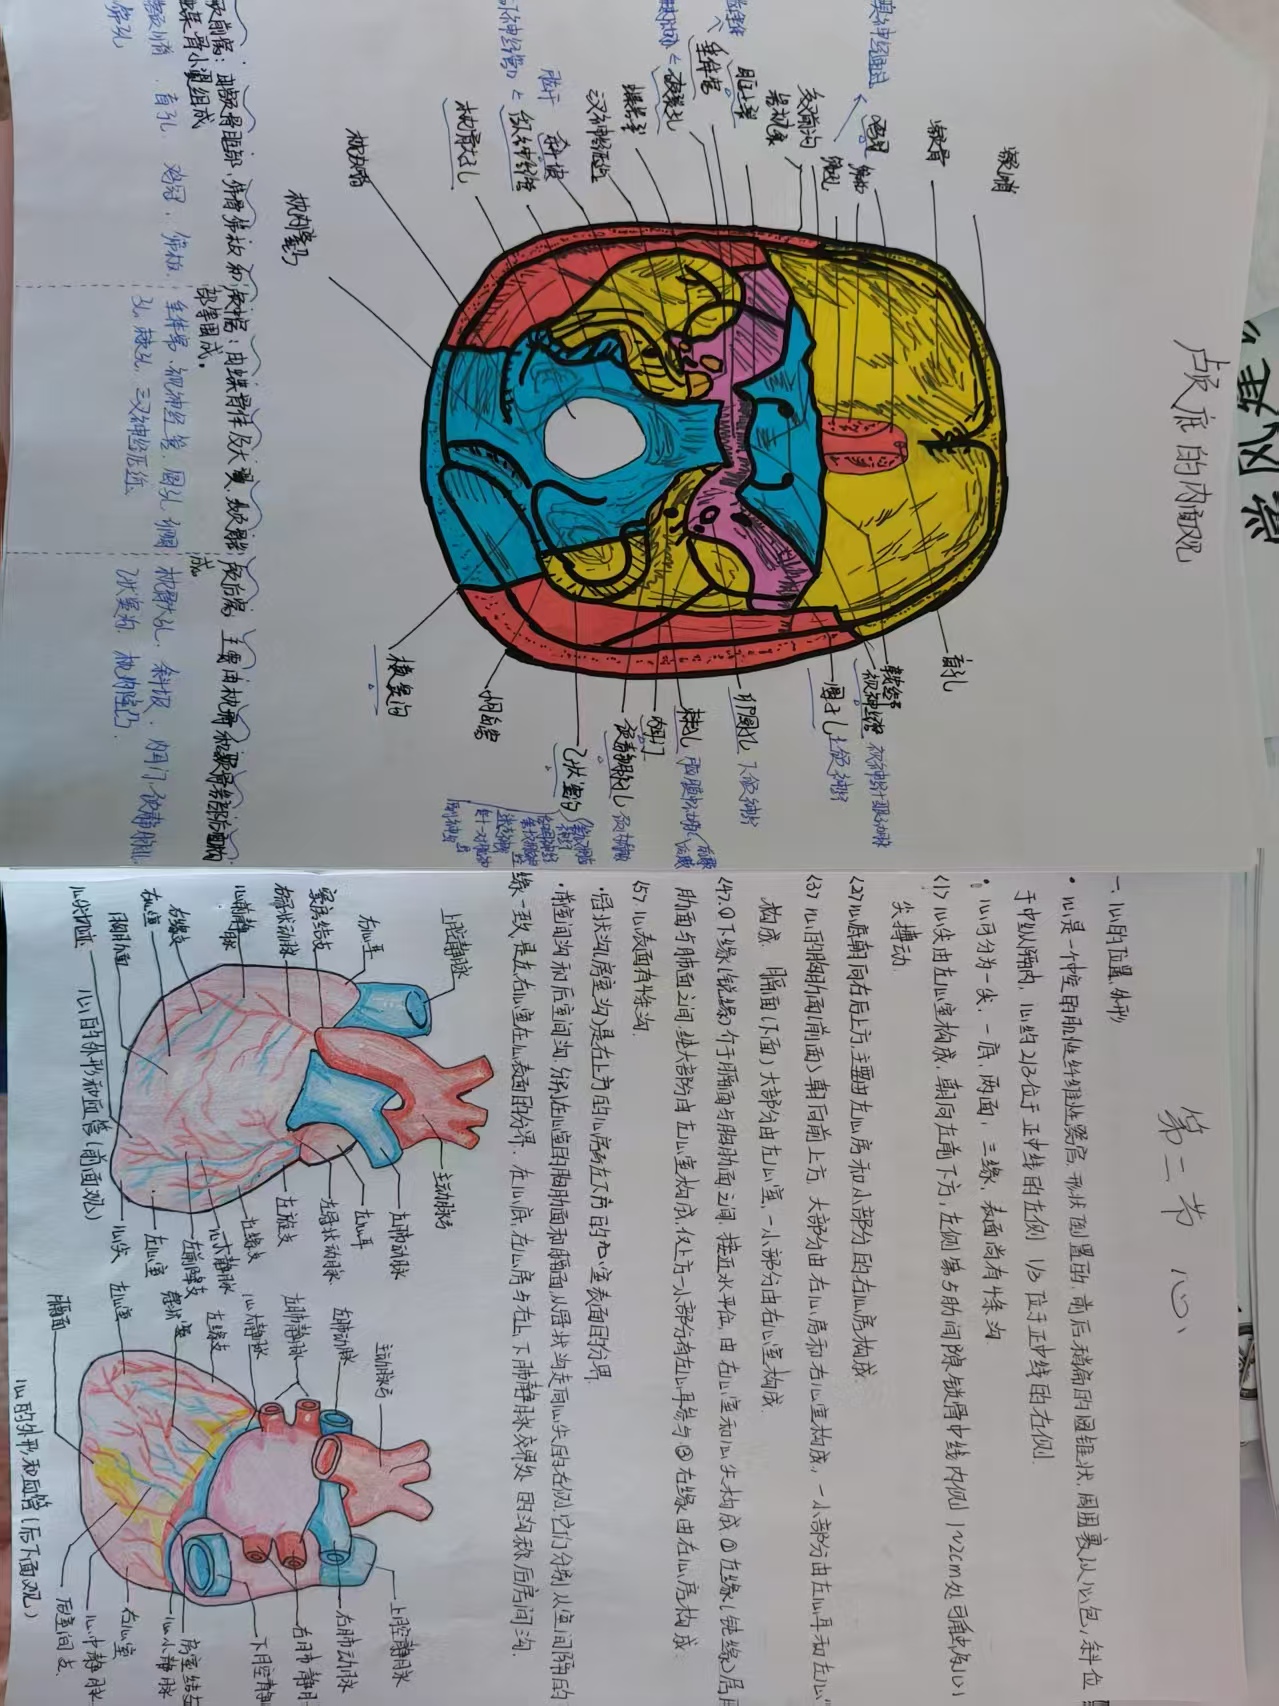 颅底的内面观
额嵴
额骨
鸡冠
筛板
筛孔
交叉前沟
眶上裂
垂体窝
破裂孔
蝶骨
三叉神经压迹
斜坡
舌下神经管
枕骨大孔
枕内嵴
枕内隆凸
盲孔
视神经管
圆孔 上颌神经
卵圆孔 下颌神经
棘孔
内耳门
颈静脉孔
乙状窦沟
横窦沟
颅前窝：由额骨眶部、筛骨筛板和
蝶骨小翼组成
额嵴、盲孔、鸡冠、筛板、
筛孔
颅中窝：由蝶骨体及大翼、颞骨
部等围成。
垂体窝、视神经管、圆孔、卵圆
孔、棘孔、三叉神经压迹
颅后窝：主要由枕骨和颞骨岩部后面构
成
枕骨大孔、斜坡、内耳门、颈静脉孔
乙状窦沟、枕内隆凸
第二节 心
一、心的位置、外形
• 心是一个中空的肌性纤维性器官，形状倒置的，前后稍扁的圆锥状，周围裹以心包，斜位
于中纵隔内，心约2/3位于正中线的左侧 1/3位于正中线的右侧
• 心可分为一尖、一底、两面、三缘，表面尚有4条沟
(1) 心尖由左心室构成，朝向左前下方，左侧第5肋间隙锁骨中线内侧1~2cm处可触为心
尖搏动
(2) 心底朝向右后上方，主要由左心房和小部分的右心房构成
(3) 心的胸肋面(前面)，朝向前上方，大部分由右心房和右心室构成，一小部分由左心耳和左心室
构成 膈面(下面)大部分由左心室，一小部分由右心室构成
(4) ①下缘(锐缘)介于膈面与胸肋面之间，接近水平位，由右心室和心尖构成 ②左缘(钝缘)居胸
肋面与肺面之间，绝大部分由左心室构成，仅上方一小部分有左心耳参与 ③右缘由右心房构成
(5) 心表面有4条沟
• 冠状沟(房室沟)是右上方的心房与左下方的心室表面的分界
• 前室间沟和后室间沟，分别在心室的胸肋面和膈面，从冠状沟走向心尖的右侧，它们分别从室间隔的
缘一致，是左、右心室在心表面的分界，在心底，右心房与右上、下肺静脉交界处的沟称后房间沟
上腔静脉
右心耳
窦房结支
右冠状动脉
心前静脉
右缘支
右心室
胸肋面
心尖切迹
主动脉弓
左肺动脉
左心耳
左冠状动脉
左旋支
左缘支
心大静脉
左前降支
左心室
心尖
心的外形和血管(前面观)
主动脉弓
左肺动脉
左肺静脉
心大静脉
左缘支
冠状窦
左心室
膈面
上腔静脉
右肺动脉
右肺静脉
下腔静脉
房室结支
心小静脉
右心室
心中静脉
后室间支
心的外形和血管(后下面观)